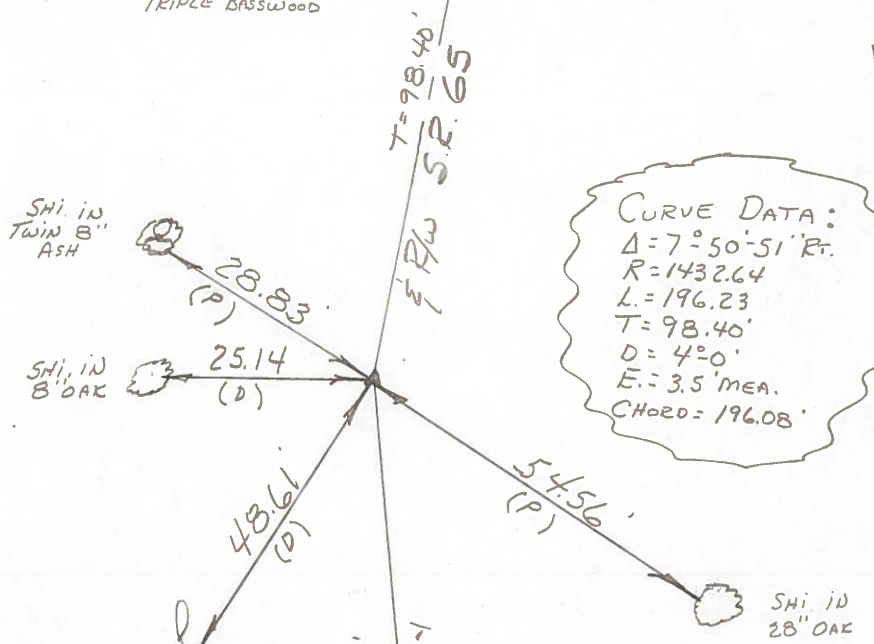 TRIPLE BASSWOOD
T=98.40'
S.R. 65
℄ R/W
SHI. IN
TWIN 8"
ASH
28.83'
(P)
SHI. IN
8" OAK
25.14
(D)
48.61'
(D)
54.56'
(P)
SHI. IN
28" OAK
CURVE DATA:
Δ=7°-50'-51" RT.
R=1432.64
L.=196.23
T=98.40'
D=4°-0'
E.=3.5' MEA.
CHORD=196.08'